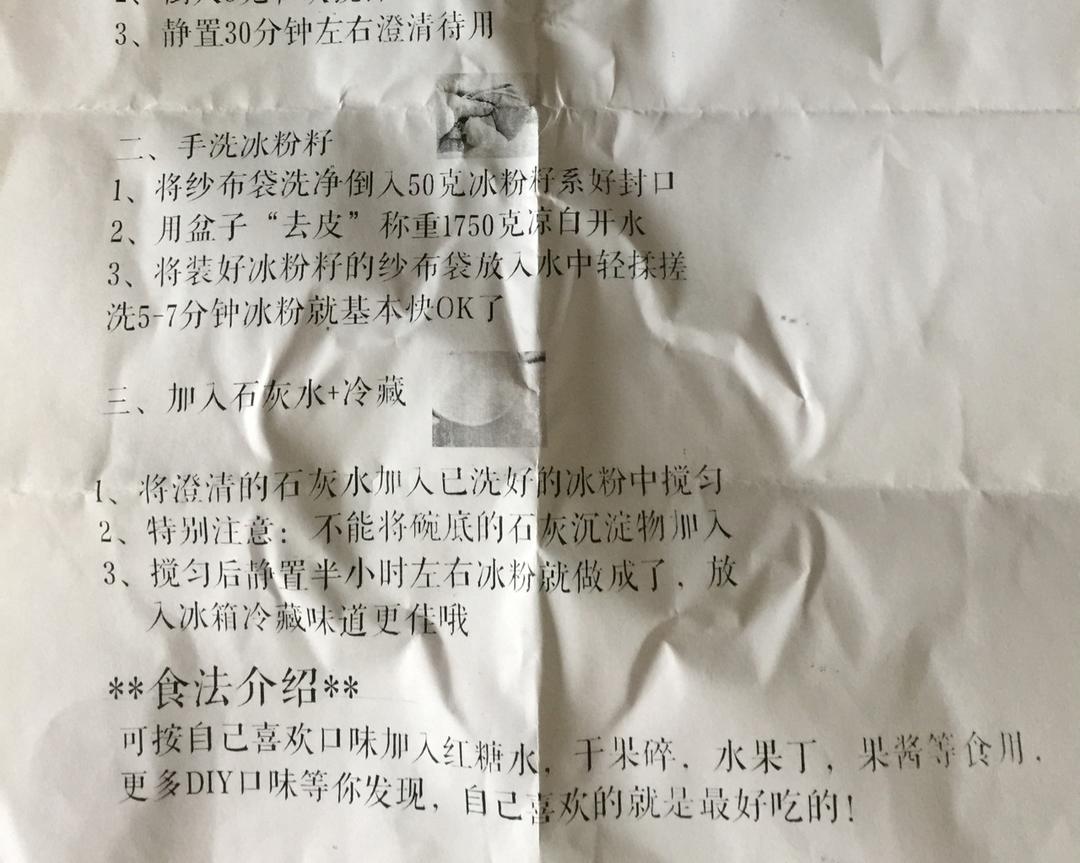 3、静置30分钟左右澄清待用
二、手洗冰粉籽
1、将纱布袋洗净倒入50克冰粉籽系好封口
2、用盆子“去皮”称重1750克凉白开水
3、将装好冰粉籽的纱布袋放入水中轻揉搓
洗5-7分钟冰粉就基本快OK了
三、加入石灰水+冷藏
1、将澄清的石灰水加入已洗好的冰粉中搅匀
2、特别注意：不能将碗底的石灰沉淀物加入
3、搅匀后静置半小时左右冰粉就做成了，放
入冰箱冷藏味道更佳哦
**食法介绍**
可按自己喜欢口味加入红糖水，干果碎，水果丁，果酱等食用，
更多DIY口味等你发现，自己喜欢的就是最好吃的！